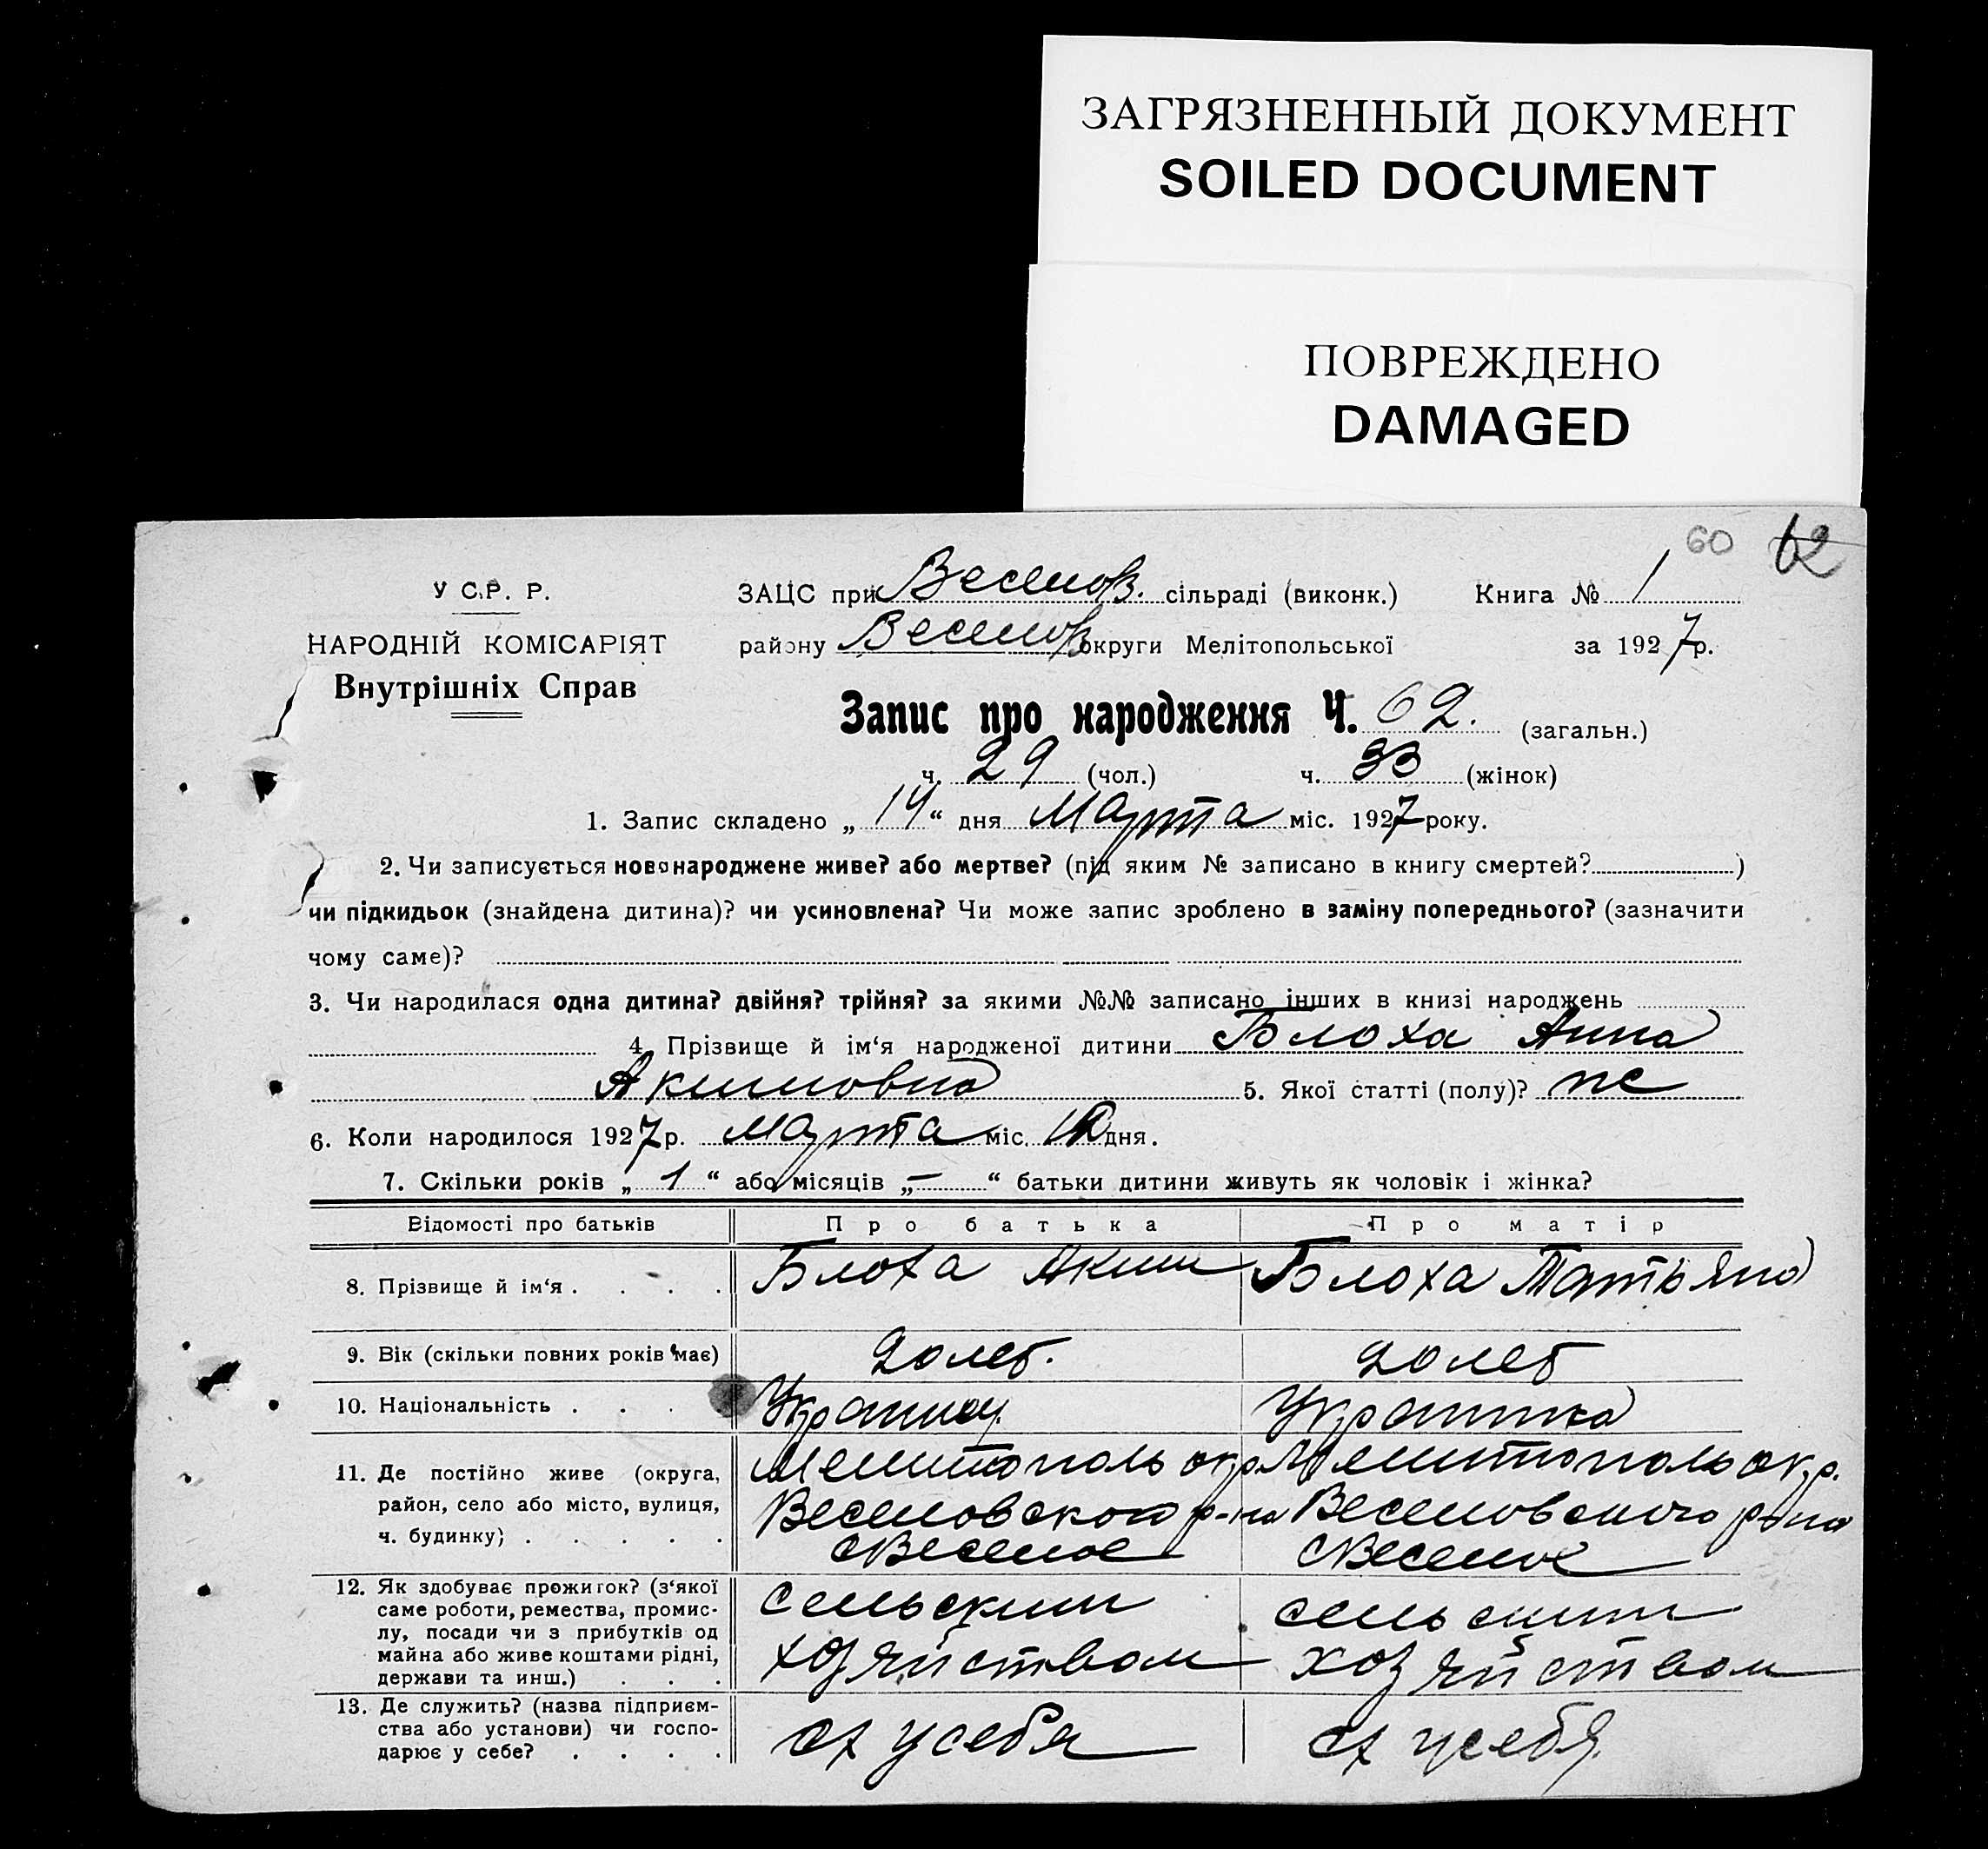 ЗАГРЯЗНЕННЫЙ ДОКУМЕНТ
SOILED DOCUMENT
ПОВРЕЖДЕНО
DAMAGED
60 62
У С.Р. Р.
ЗАЦС при Веселов. сільраді (виконк.) Книга № 1
НАРОДНІЙ КОМІСАРІЯТ
району Веселов округи Мелітопольської за 1927 р.
Внутрішніх Справ
Запис про народження Ч. 62. (загальн.)
ч. 29 (чол.) ч. 33 (жінок)
1. Запис складено „ 14 “ дня Марта міс. 1927 року.
2. Чи записується новонароджене живе? або мертве? (під яким № записано в книгу смертей? )
чи підкидьок (знайдена дитина)? чи усиновлена? Чи може запис зроблено в заміну попереднього? (зазначити
чому саме)?
3. Чи народилася одна дитина? двійня? трійня? за якими №№ записано інших в книзі народжень
4. Прізвище й ім‘я народженої дитини Блоха Анна
Акимовна 5. Якої статті (полу)?
6. Коли народилося 1927 р. марта міс. дня.
7. Скільки років „ 1 “ або місяців „ — “ батьки дитини живуть як чоловік і жінка?
Відомості про батьків Про батька Про матір
8. Прізвище й ім‘я . . . . Блоха Аким Блоха Татьяна
9. Вік (скільки повних років має) 20 лет. 20 лет
10. Національність . . . . Украинец Украинка
11. Де постійно живе (округа, Мелитополь окр. Мелитополь окр.
район, село або місто, вулиця, Веселовского р-на Веселовского р-на
ч. будинку) . . . . . с Веселое с Веселое
12. Як здобуває прожиток? (з‘якої
саме роботи, ремества, промис- сельским сельским
лу, посади чи з прибутків од
майна або живе коштами рідні, хозяйством хозяйством
держави та инш.) . . .
13. Де служить? (назва підприєм-
ства або установи) чи госпо- сх у себя сх у себя.
дарює у себе? . . . .